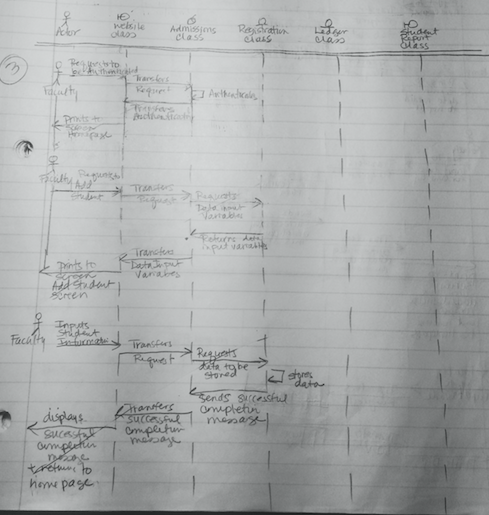 Actor
Website
class
Admissions
class
Registration
class
Ledger
class
Student
Report
class
3
Faculty
Requests to
be Authenticated
Transfers
Request
Authenticate
Transfers
Prints to
Screen
Homepage
Faculty
Requests to
Add
Student
Transfers
Request
Requests
Data Input
Variables
Returns data
input variables
Transfers
Data Input
Variables
Prints to
screen
Add Student
Screen
Faculty
Inputs
Student
Information
Transfers
Request
Requests
data to be
stored
stores
data
Sends successful
completion
message
Transfers
successful
completion
message
displays
successful
completion
message
+ return to
homepage